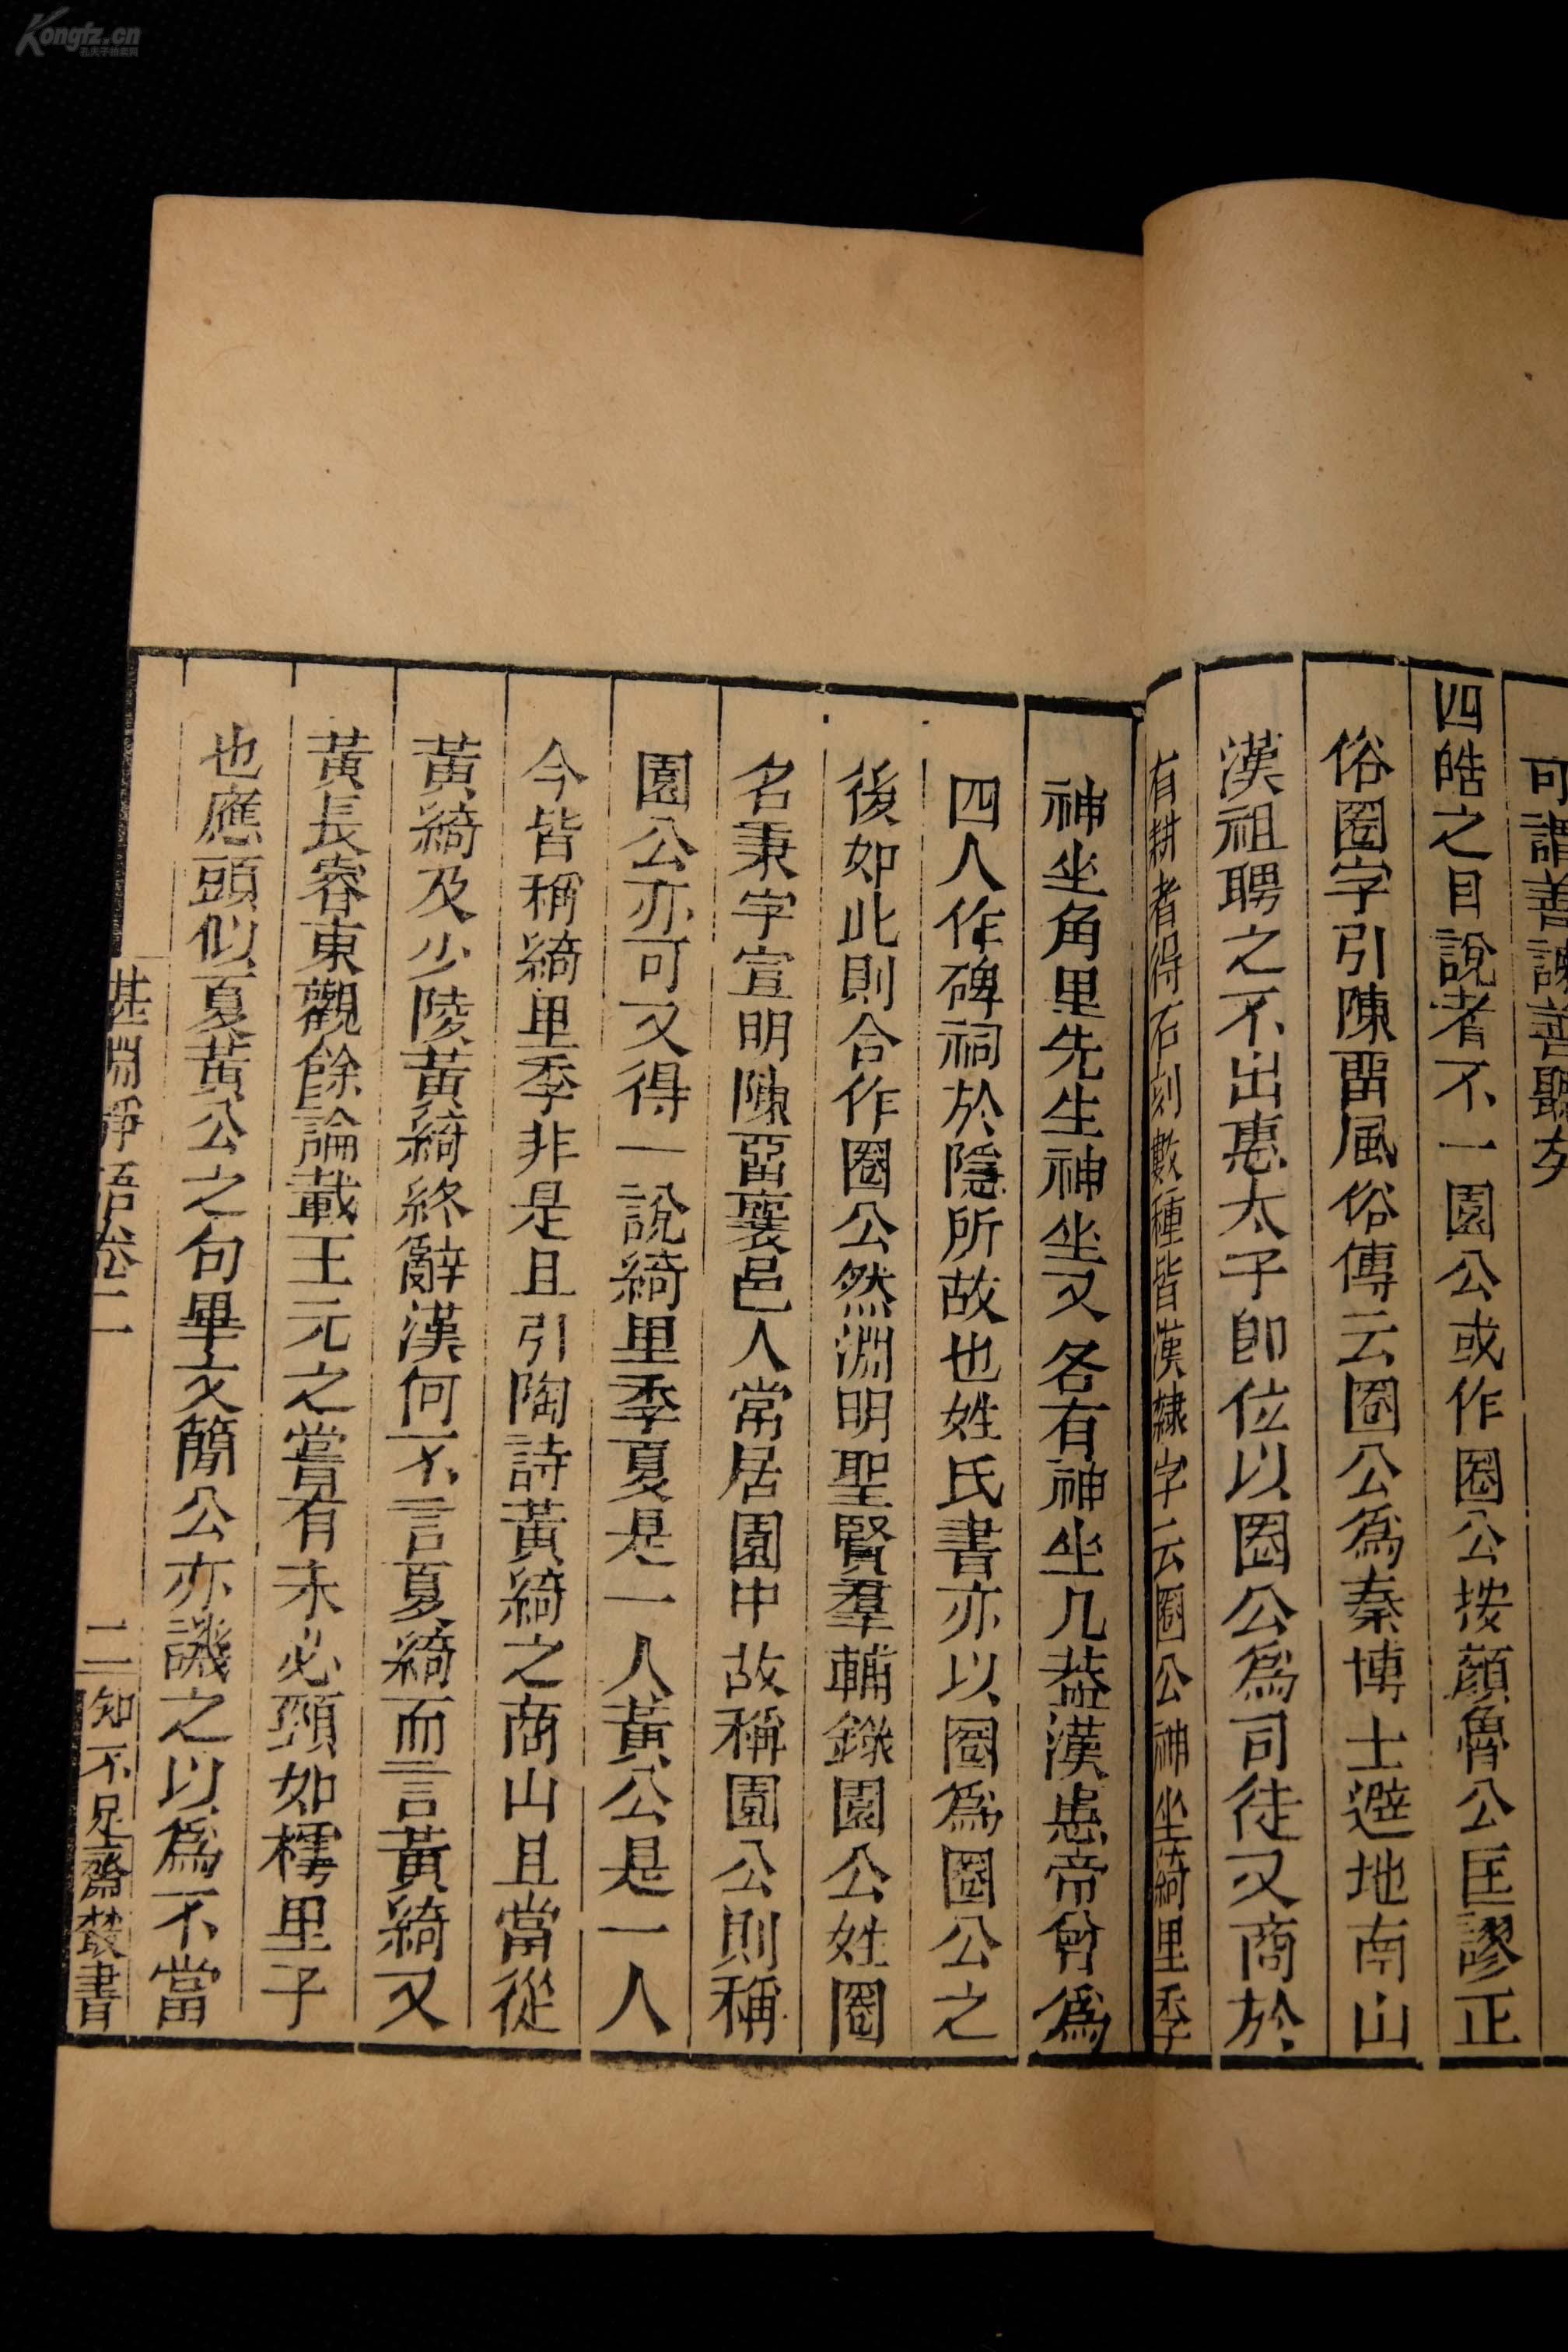 Kongfz.cn
孔夫子拍卖网
可謂善謔善聽矣
四皓之目說者不一園公或作圈公按顔魯公匡謬正
俗圈字引陳畱風俗傳云圈公爲秦博士避地南山
漢祖聘之不出惠太子卽位以圈公爲司徒又商於
有耕者得石刻數種皆漢隸字云圈公神坐綺里季
神坐角里先生神坐又各有神坐几葢漢惠帝曾爲
四人作碑祠於隱所故也姓氏書亦以圈爲圈公之
後如此則合作圈公然淵明聖賢羣輔錄園公姓圈
名秉字宣明陳畱襄邑人常居園中故稱園公則稱
園公亦可又得一說綺里季夏是一人黃公是一人
今皆稱綺里季非是且引陶詩黃綺之商山且當從
黃綺及少陵黃綺終辭漢何不言夏綺而言黃綺又
黃長睿東觀餘論載王元之嘗有未必頸如樗里子
也應頭似夏黃公之句畢文簡公亦譏之以爲不當
湛淵靜語卷二
二
知不足齋叢書